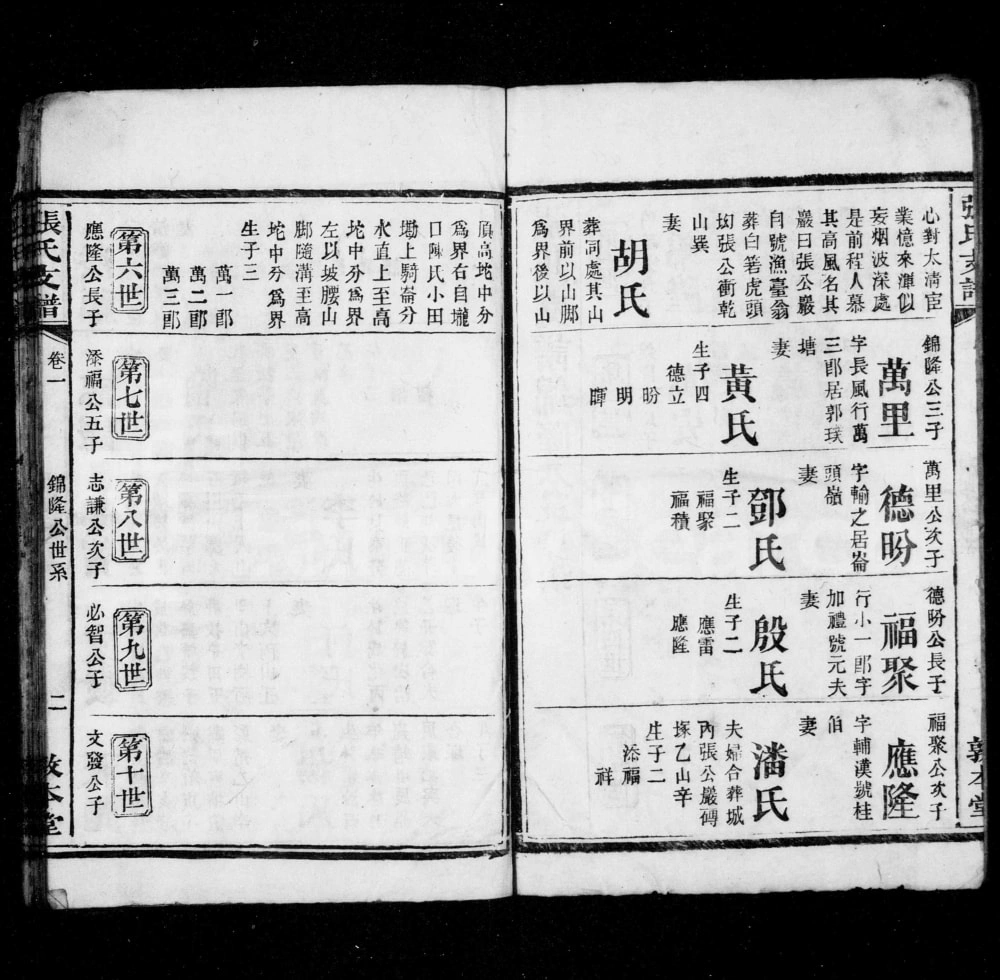 心對太清宦
業憶來渾似
妄烟波深處
是前程人慕
其高風名其
巖曰張公巖
自號漁臺翁
葬白箬虎頭
㘭張公衝乾
山巽
妻
胡氏
葬詞處其山
界前以山脚
為界後以山
錦隆公三子
萬里
字長風行萬
三郎居郭璞
塘
妻
黃氏
生子四
德立
昐
明
暉
萬里公次子
德昐
字輸之居崙
頭嶺
妻
鄧氏
生子二
福聚
福積
德昐公長子
福聚
行小一郎字
加禮號元夫
妻
殷氏
生子二
應雷
應隆
福聚公次子
應隆
字輔漢號桂
伯
妻
潘氏
夫婦合葬城
內張公巖磚
塚乙山辛
生子二
添福
祥
敦本堂
頂高坨中分
為界右自壠
口陳氏小田
塝上騎崙分
水直上至高
坨中分為界
左以坡腰山
脚隨溝至高
坨中分為界
生子三
萬一郎
萬二郎
萬三郎
第六世
應隆公長子
第七世
添福公五子
第八世
志謙公次子
第九世
必智公子
第十世
文發公子
張氏支譜
卷一
錦隆公世系
二
敦本堂